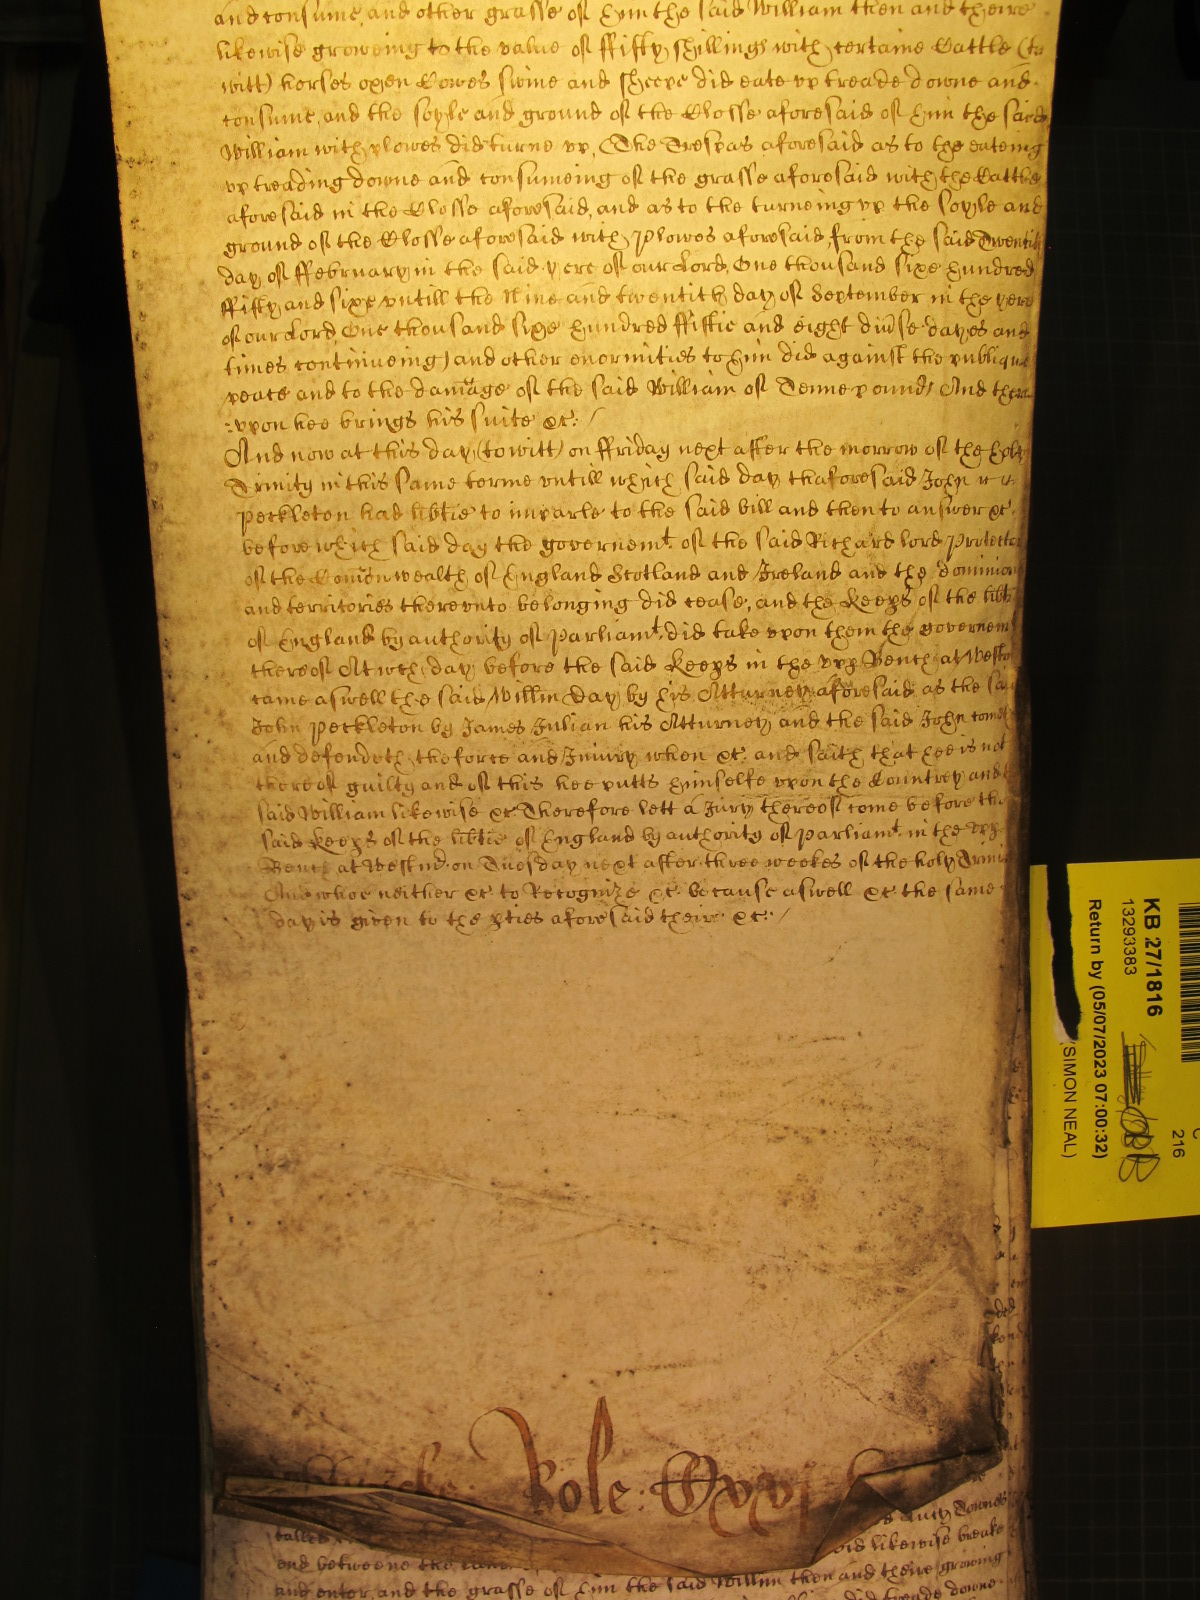 and consume, and other grasse of him the said William then and theire
likewise groweing to the value of ffifty shillings with certaine Cattle (to
witt) horses oxen Cowes swine and sheepe did eate vp treade downe and
consume, and the soyle and ground of the Closse aforesaid of him the said
William with plowes did turne vp, (The Trespas aforesaid as to the eateing
vp treading downe and consumeing of the grasse aforesaid with the Cattle
aforesaid in the Closse aforesaid, and as to the turneing vp the soyle and
ground of the Closse aforesaid with plowes aforesaid from the said Twentith
day of ffebruary in the said yere of our Lord, One thousand sixe hundred
ffifty and sixe vntill the Nine and twentith day of September in the yere
of our Lord, One thousand sixe hundred ffiftie and eight diuse dayes and
times continueing) and other enormities to him did against the publique
peace and to the damage of the said William of Tenne pounds And there
:vpon hee brings his suite &c: /
And now at this day (to witt) on ffriday next after the morrow of the holy
Trinity in this same terme vntill which said day thaforesaid John
Peckleton had libtie to imparle to the said bill and then to answer &c.
before which said day the governemt. of the said Richard lord Protector
of the Comonwealth of England Scotland and Ireland and the dominions
and territories therevnto belonging did cease, and the Keeps of the libtie
of England by authority of Parliamt. did take vpon them the governemt
thereof At wch day before the said Keeps in the vpp Bench at Westm
came aswell the said Willim Day by his Atturney aforesaid as the said
John Peckleton by James Julian his Atturney and the said John cometh
and defendeth the force and Iniury when &c. and saith that hee is not
thereof guilty and of this hee putts himselfe vpon the Countrey and the
said William likewise &c Therefore lett a Jury thereof come before the
said Keeps of the libtie of England by authority of Parliamt. in the vpp
Bench at Westmr. on Tuesday next after three weekes of the holy Trinity
And whoe neither &c. to Recognize &c. because aswell &c the same
day is given to the pties aforesaid their &c: /
Role: Cxxj
Downes
called
said likewise breake
and betweene the
and enter, and the grasse of him the said Willim then and theire growing
did treade downe
KB 27/1816
13293383
Return by (05/07/2023 07:00:32)
SIMON NEAL)
216